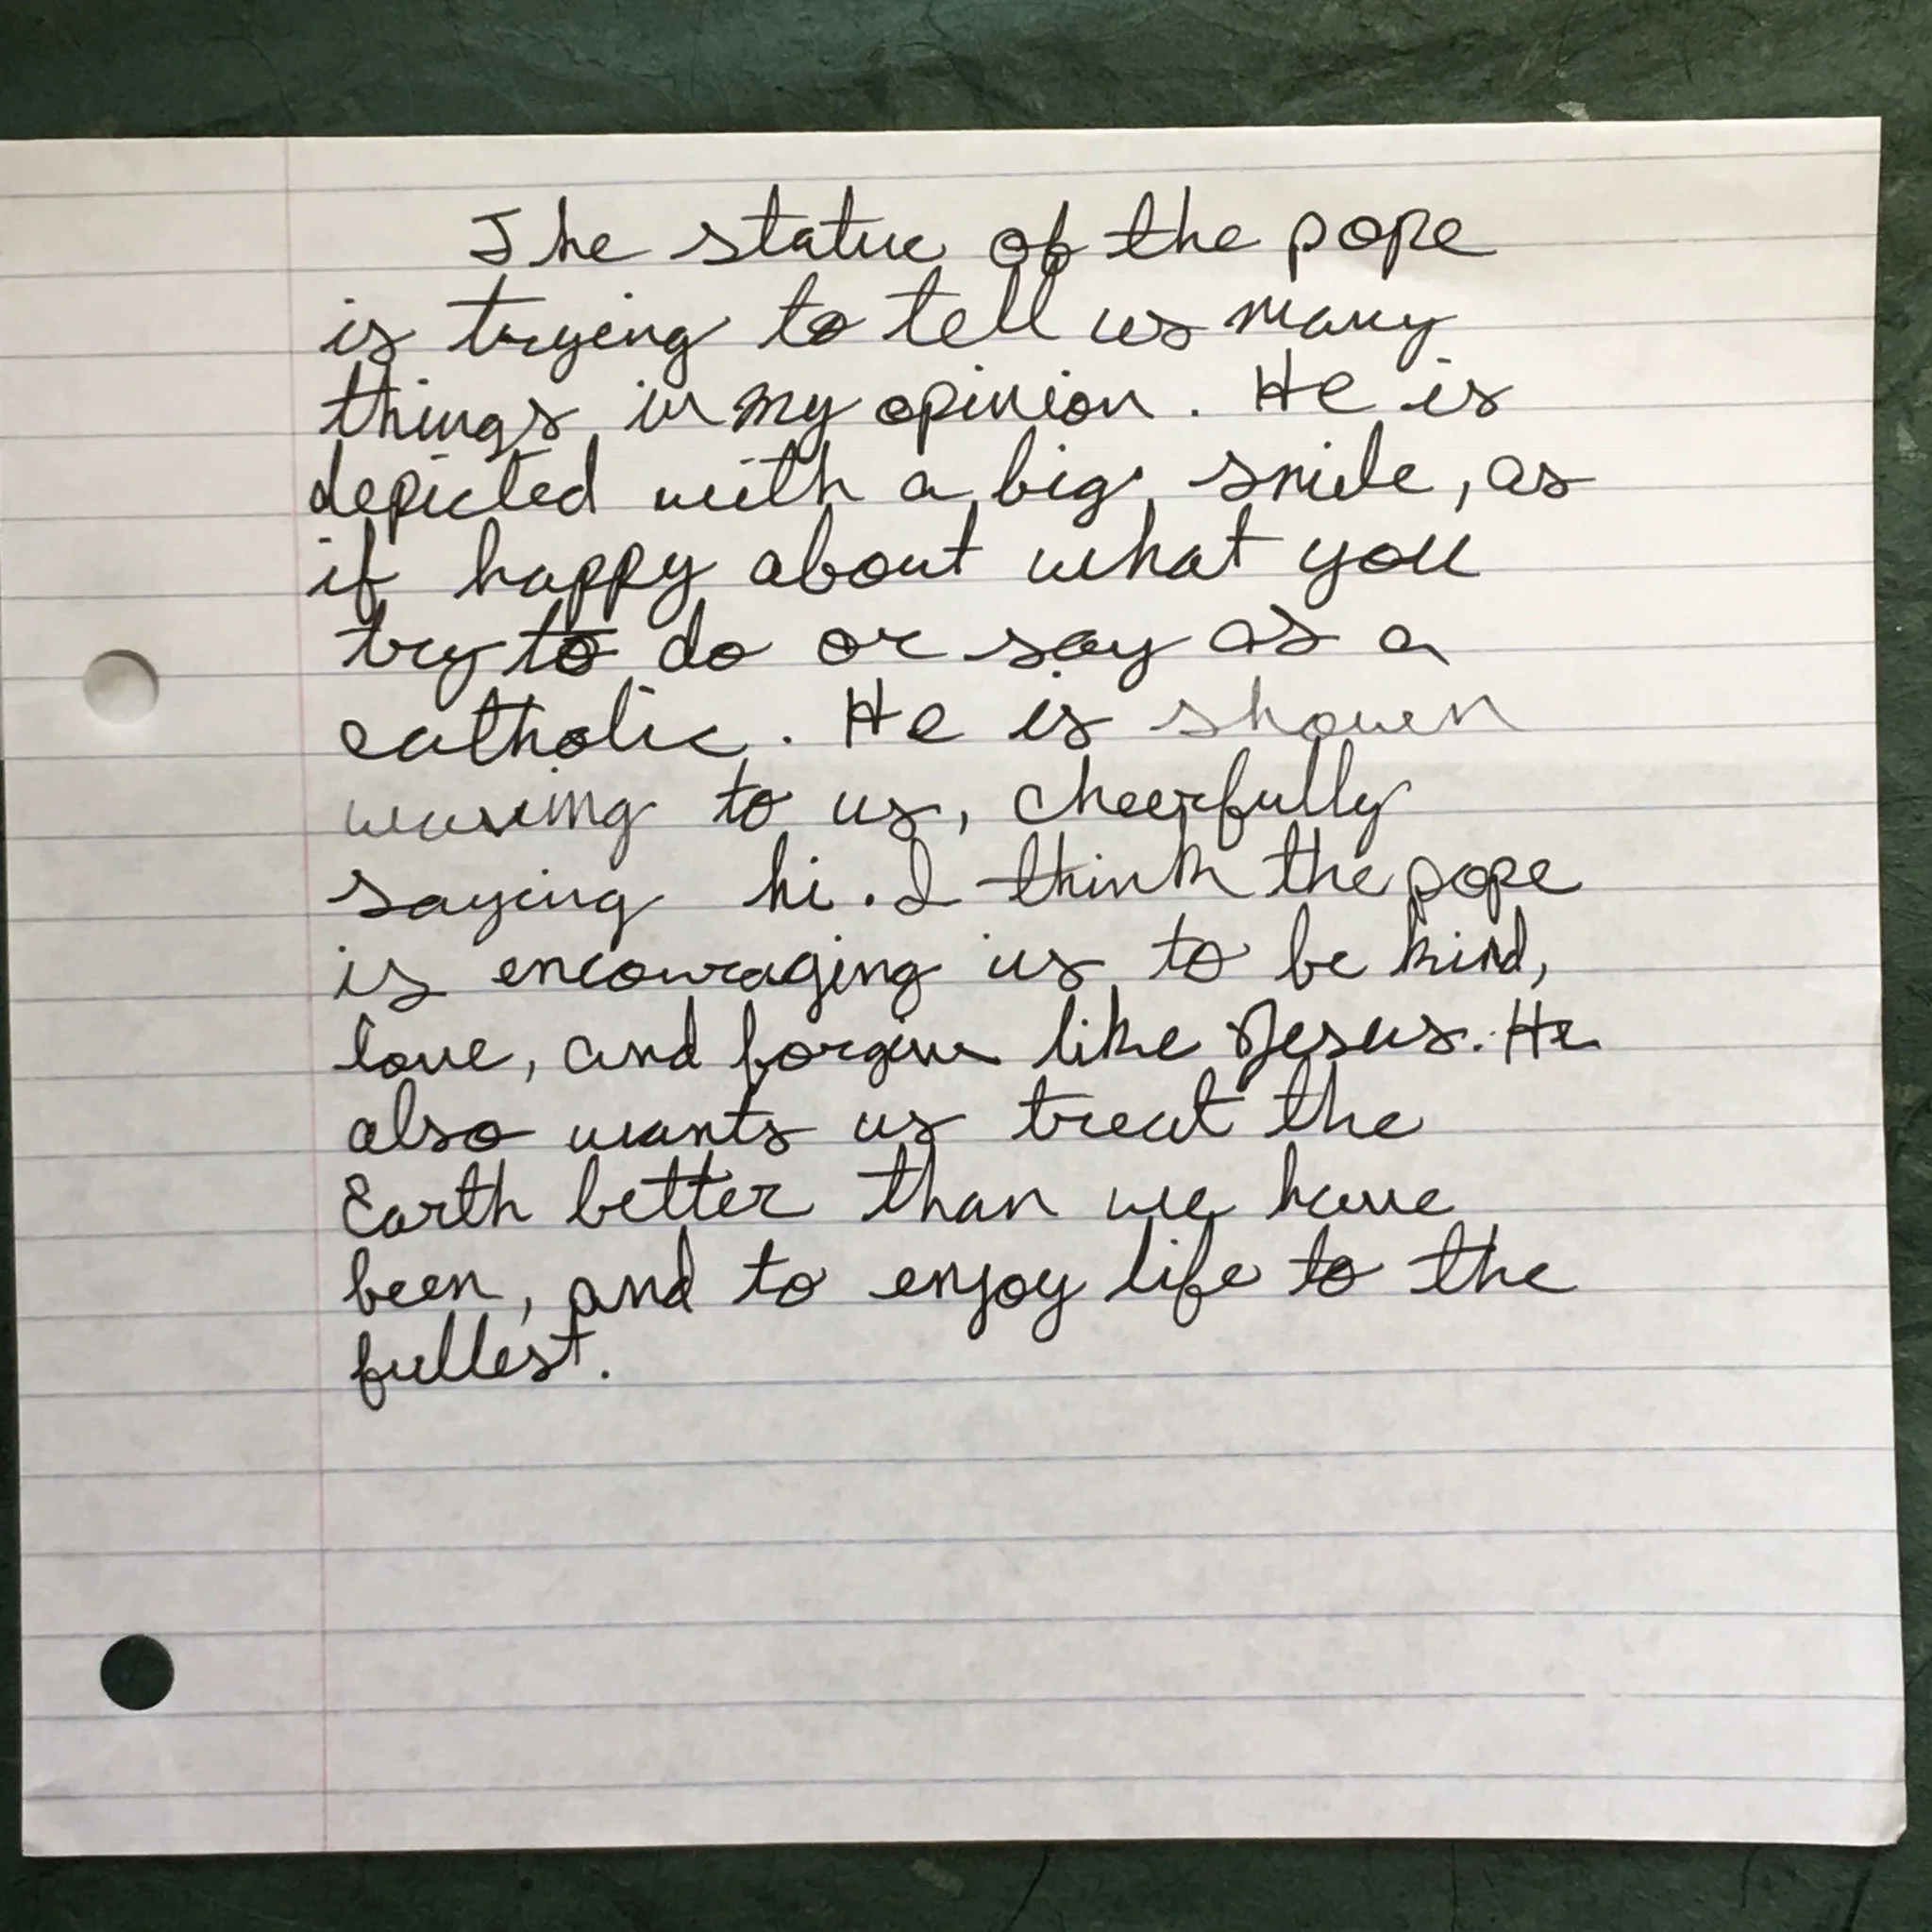 The statue of the pope
is trying to tell us many
things in my opinion. He is
depicted with a big smile, as
if happy about what you
try to do or say as a
catholic. He is shown
waving to us, cheerfully
saying hi. I think the pope
is encouraging us to be kind,
love, and forgive like Jesus. He
also wants us treat the
Earth better than we have
been, and to enjoy life to the
fullest.